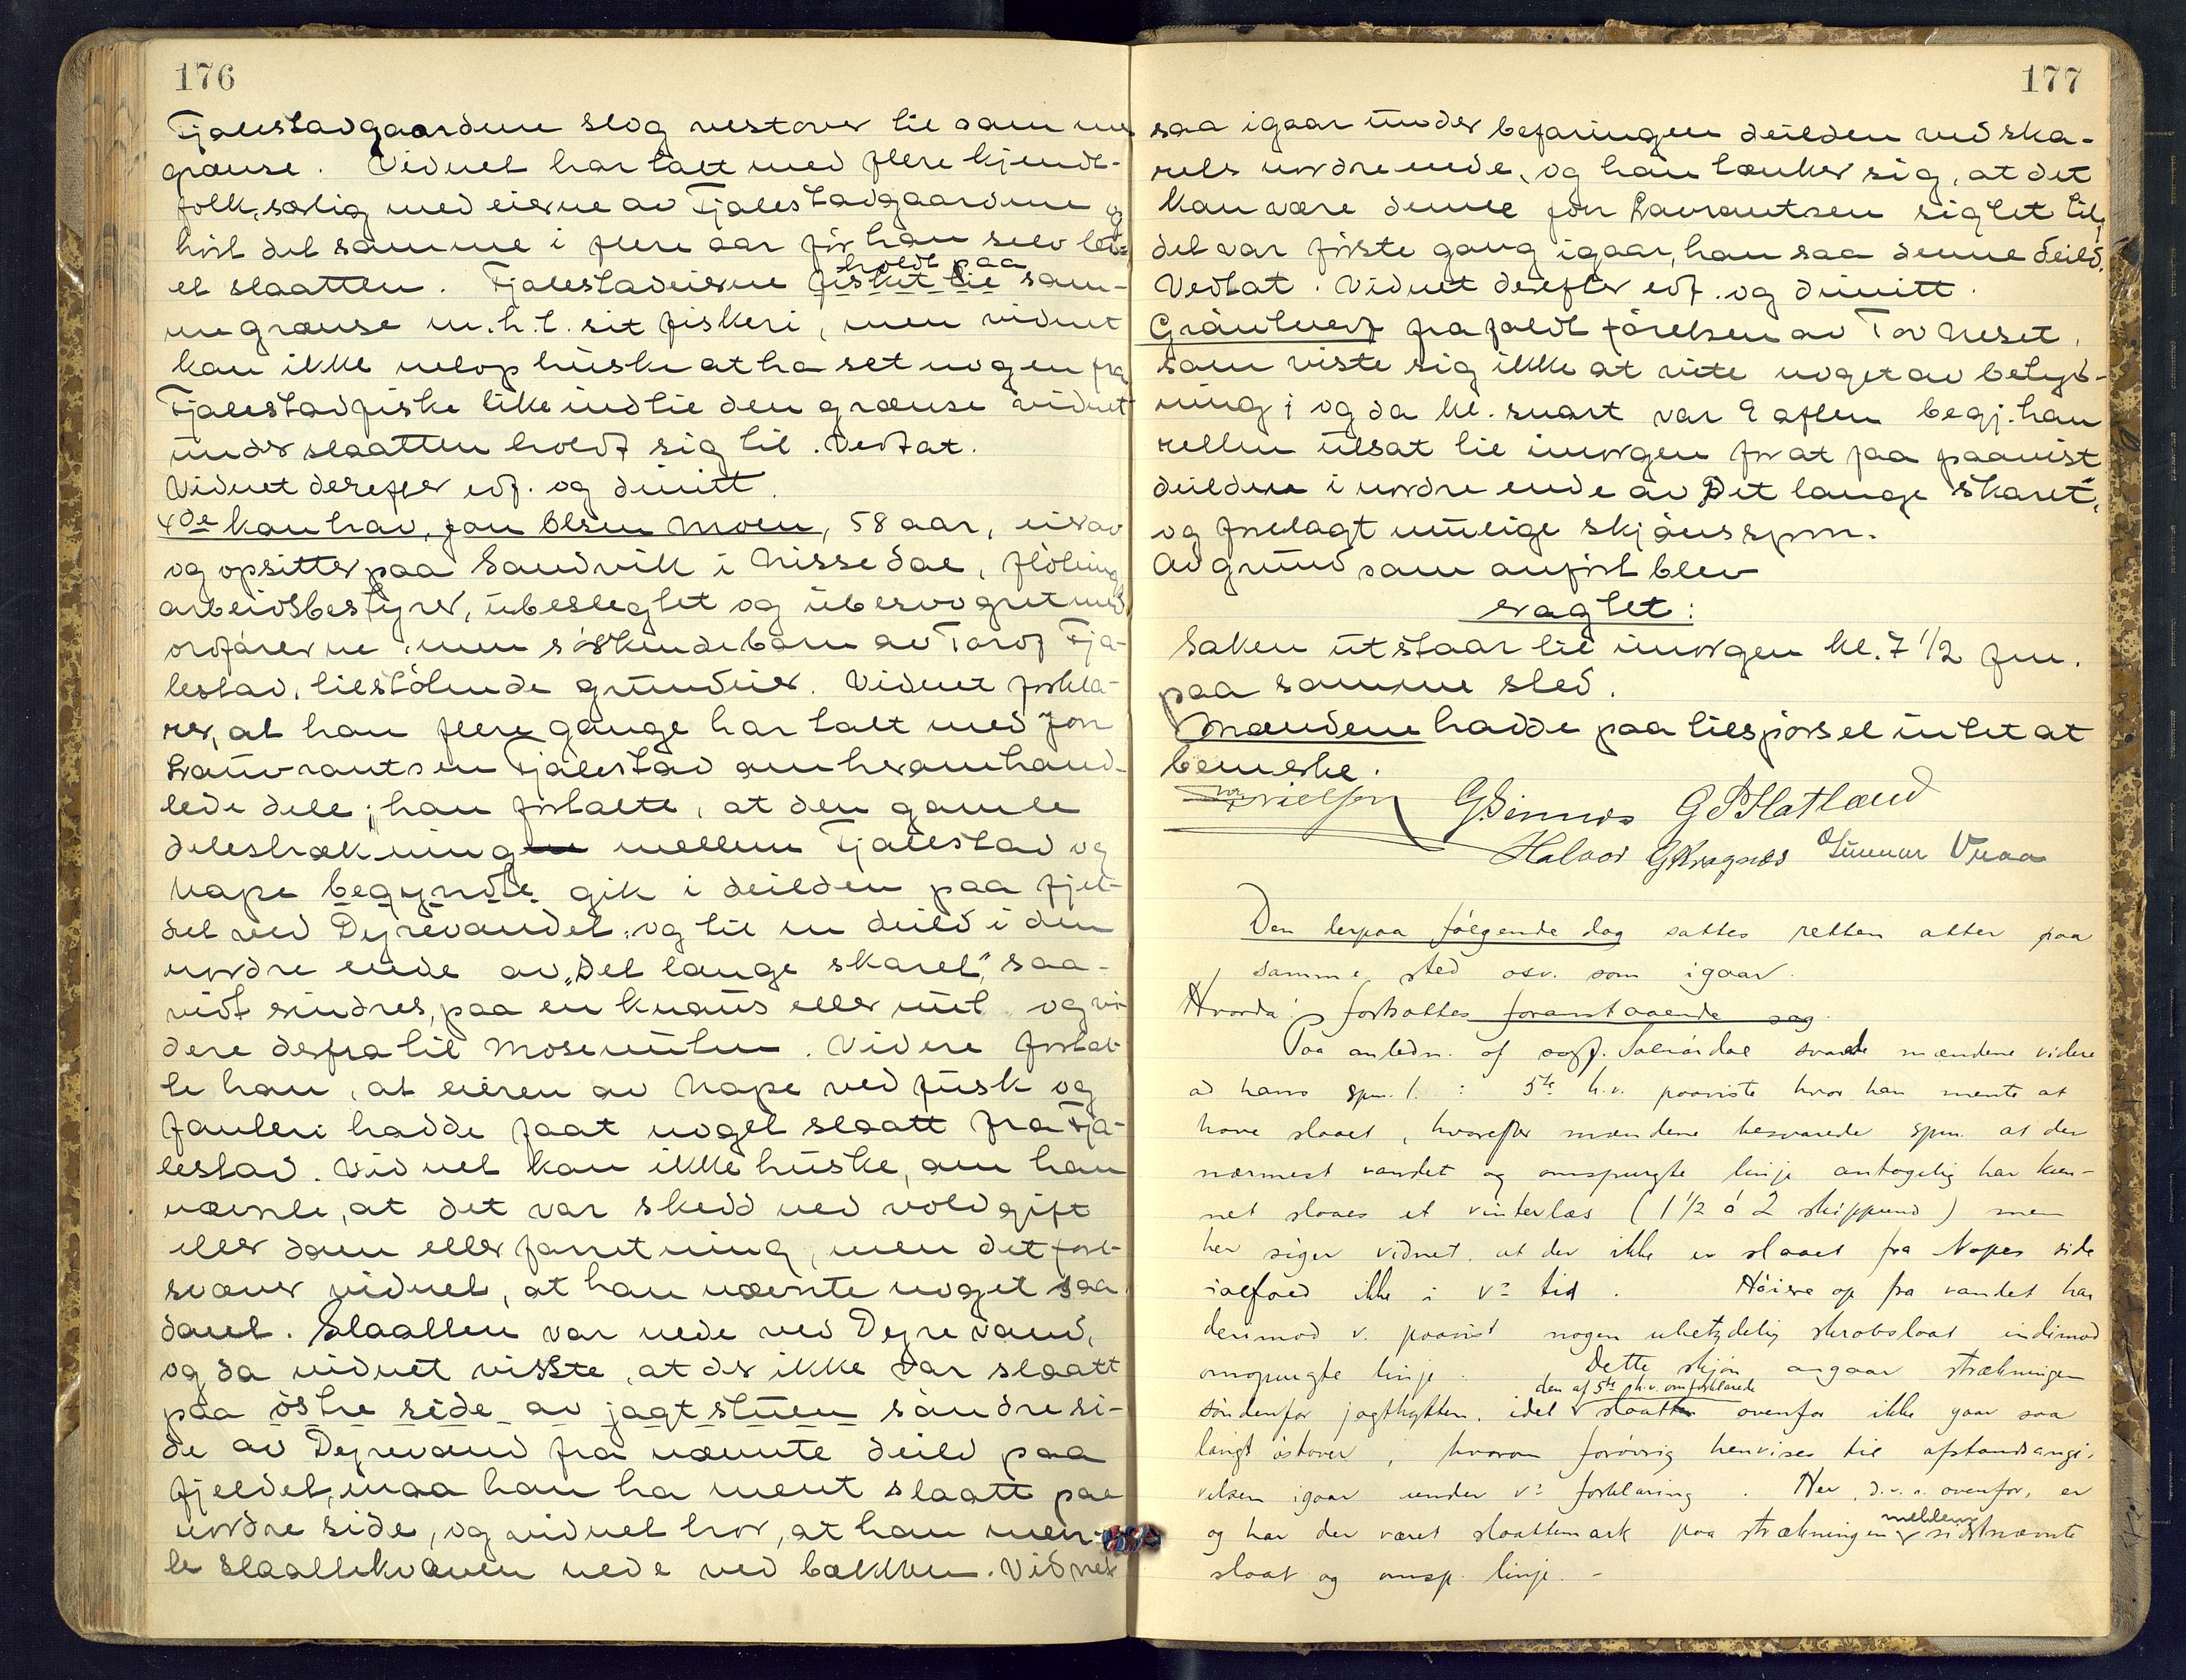 176
Fjalestadgaardene slog vestover til samme
grænse. Vidnet har talt med flere kjendt-
folk, særlig med eierne av Fjalestadgaardene og
hørt det samme i flere aar før han selv lei-
et slaatten. Fjalestadeierne fisket til holdt paa sam-
me grænse m.h.t. sit fiskeri, men vidnet
kan ikke netop huske at ha set nogen fra
Fjalestad fiske like ind til den grænse vidnet
under slaatten holdt sig til. Vedtat.
Vidnet derefter edf. og dimitt.
4de hav, Jon Olsen Moen, 58 aar, eier av
og opsitter paa Sandvik i Nissedal, fløtnings
arbeidsbestyrer, ubeslegtet og ubesvogret med
ordførerne, men søskendebarn av Tarof Fja-
lestad, tilstøtende grundeier. Vidnet forkla-
rer, at han flere gange har talt med Jon
Lauvrantsen Fjalestad om heromhand-
lede dele; han fortalte, at den gamle
delestrækning mellem Fjalestad og
Nape begyndte gik i deilden paa fjel-
det ved Dyrevandet, og til en deild i den
nordre ende av "Det lange skaret", saa-
vidt erindres, paa en knaus eller nut og vi-
dere derfra til Mosenuten. Videre fortal-
te han, at eieren av Nape ved fusk og
fanteri hadde faat noget slaatt fra Fja-
lestad. Vidnet kan ikke huske, om han
nævnte, at det var skedd ved voldgift
eller dom eller forretning, men det fore-
svæver vidnet, at han nævnte noget saa
dant. Slaatten var nede ved Dyrevand,
og da vidnet visste, at der ikke var slaatt
paa østre side av jagtstuen søndre si-
de av Dyrevand fra nævnte deild paa
fjeldet, maa han ha ment slaatt paa
nordre side, og vidnet tror, at han men-
te slaattekvæven nede ved bækken. Vidnet
177
saa igaar under befaringen deilden ved ska-
rets nordre ende, og han tænker sig, at det
kan være denne Jon Lavrantsen sigtet til;
det var første gang igaar, han saa denne deild.
Vedtat. Vidnet derefter edf. og dimitt.
Grautnes frafaldt førelsen av Tov Neset,
som viste sig ikke at vite noget av betyd-
ning; og da kl. snart var 9 aften begj. han
retten utsat til imorgen for at faa paavist
deilden i nordre ende av "Det lange skaret",
og forelagt mulige skjønsspm.
Av grund som anført blev
eragtet:
Saken utstaar til imorgen kl. 7 1/2 fm.
paa samme sted.
Mændene hadde paa tilspørsel intet at
bemerke.
Nielsen G. Simnes G S Hatland
Halvor G Kragnes Gunnar Vraa
Den derpaa følgende dag sattes retten atter paa
samme sted osv. som igaar.
Hvorda: fortsattes foranstaaende sag.
Paa anledn. af sagf. Salvisdal svarede mændene videre
ad hans spm. 1. : 5te h.v. paaviste hvor han mente at
have slaaet, hvorefter mændene besvarede spm. at der
nærmest vandet og omspurgte linje antagelig har kun-
net slaaes et vinterlæs (1 1/2 á 2 skippund) men
her siger vidnet, at der ikke er slaaet fra Napes side
ialfald ikke i v's tid. Høiere op fra vandet har
derimod v. paavist nogen ubetydelig skrabslaat indimod
omspurgte linje. Dette skjøn angaar strækningen
søndenfor jagthytten, idet den af 5te h.v. omforklarede slaatten ovenfor ikke gaar saa
langt østover, hvorom forøvrig henvises til afstandsangi-
velsen igaar under v's forklaring. Her, d.v.s. ovenfor, er
og har der været slaattemark paa strækningen mellem sidstnævnte
slaat og omsp. linje. -